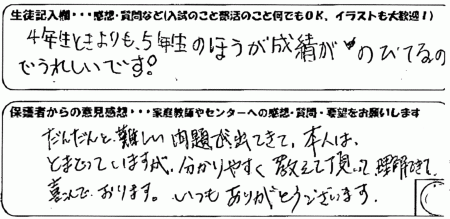 生徒記入欄・・・感想・質問など(入試のこと部活のこと何でもOK、イラストも大歓迎!)
4年生ときよりも、5年生のほうが成績がのびてるの
でうれしいです。
保護者からの意見感想・・・家庭教師やセンターへの感想・質問・要望をお願いします
だんだんと、難しい問題が出てきて、本人は、
とまどっていますが、分かりやすく教えて頂いて、理解できて、
喜んでおります。いつもありがとうございます。